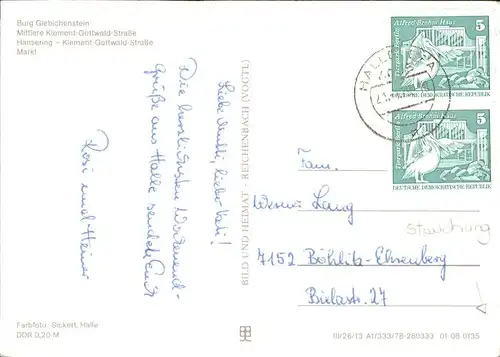 Burg Giebichenstein
Mittlere Klement-Gottwald-Straße
Hansering – Klement-Gottwald-Straße
Markt
Liebe Mutti, lieber Vati!
Die herzlichsten Wochenend-
grüße aus Halle senden Euch
Rosi und Heiner
BILD UND HEIMAT · REICHENBACH (VOGTL)
HALLE
Alfred-Brehm-Haus
5
Tierpark Berlin
DEUTSCHE DEMOKRATISCHE REPUBLIK
Alfred-Brehm-Haus
5
Tierpark Berlin
DEUTSCHE DEMOKRATISCHE REPUBLIK
Fam.
Werner Lang
7152 Böhlitz-Ehrenberg
Bielastr. 27
Farbfoto: Sickert, Halle
DDR 0,20 M
III/26/13 A1/333/78-260333 01 08 0135